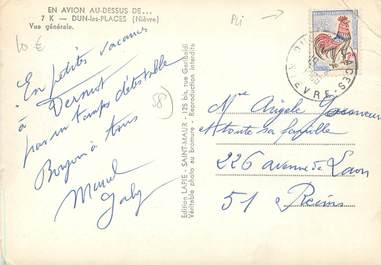 EN AVION AU-DESSUS DE...
7 K — DUN-les-PLACES (Nièvre)
Vue générale.
10 €
Pli
58
En petites vacances
à Vermot
par un temps détestable
Bonjour à tous
Marcel
Edition LAPIE - SAINT-MAUR - 125 bis, rue Garibaldi
Véritable photo au bromure - Reproduction interdite
Mme Angèle
et toute sa famille
226 avenue de Laon
51 Reims